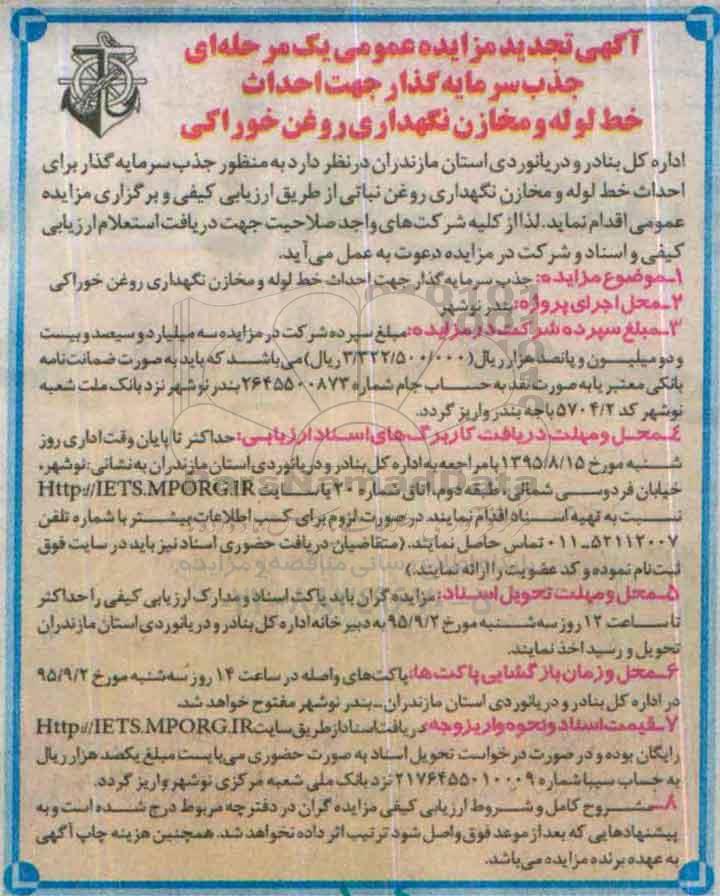 آگهی تجدید مزایده عمومی یک مرحله‌ای
جذب سرمایه گذار جهت احداث
خط لوله و مخازن نگهداری روغن خوراکی
اداره کل بنادر و دریانوردی استان مازندران در نظر دارد به منظور جذب سرمایه گذار برای
احداث خط لوله و مخازن نگهداری روغن نباتی از طریق ارزیابی کیفی و برگزاری مزایده
عمومی اقدام نماید. لذا از کلیه شرکت‌های واجد صلاحیت جهت دریافت استعلام ارزیابی
کیفی و اسناد و شرکت در مزایده دعوت به عمل می‌آید.
۱ـ موضوع مزایده: جذب سرمایه گذار جهت احداث خط لوله و مخازن نگهداری روغن خوراکی
۲ـ محل اجرای پروژه: بندر نوشهر
۳ـ مبلغ سپرده شرکت در مزایده: مبلغ سپرده شرکت در مزایده سه میلیارد و سیصد و بیست
و دو میلیـــون و پانصد هزار ریال (۳/۳۲۲/۵۰۰/۰۰۰ ریال) می‌باشـــد که باید به صورت ضمانت‌نامه
بانکی معتبر یا به صورت نقد به حســـاب جام شماره ۲۶۴۵۵۰۰۸۷۳ بندر نوشهر نزد بانک ملت شعبه
نوشهر کد ۵۷۰۴/۲ باجه بندر واریز گردد.
۴ـ محـل و مهلت دریافت کاربرگ‌های اسـناد ارزیابـی: حداکثر تا پایان وقت اداری روز
شـــنبه مورخ ۱۳۹۵/۸/۱۵ با مراجعه به اداره کل بنادر و دریانوردی استان مازندران به نشانی: نوشهر،
خیابان فردوســـی شمالی، طبقه دوم، اتاق شماره ۲۰ یا ســـایت Http://IETS.MPORG.IR
نســـبت به تهیه اســـناد اقدام نمایند. در صورت لزوم برای کسب اطلاعات بیشـــتر با شماره تلفن
۵۲۱۱۲۰۰۷ـ۰۱۱ تماس حاصل نمایند. (متقاضیان دریافت حضوری اسناد نیز باید در سایت فوق
ثبت‌نام نموده و کد عضویت را ارائه نمایند.)
۵ـ محل و مهلت تحویل اسـناد: مزایده گران باید پاکت اسناد و مدارک ارزیابی کیفی را حداکثر
تا ســـاعت ۱۲ روز سه‌شـــنبه مورخ ۹۵/۹/۲ به دبیرخانه اداره کل بنادر و دریانوردی استان مازندران
تحویل و رسید اخذ نمایند.
۶ـ محل و زمان بازگشایی پاکت‌ها: پاکت‌های واصله در ساعت ۱۴ روز سه‌شنبه مورخ ۹۵/۹/۲
در اداره کل بنادر و دریانوردی استان مازندران ـ بندر نوشهر مفتوح خواهد شد.
۷ـ قیمت اسناد و نحوه واریز وجه: دریافت اسناد از طریق سایت Http://IETS.MPORG.IR
رایگان بوده و در صورت درخواست تحویل اسناد به صورت حضوری می‌بایست مبلغ یکصد هزار ریال
به حساب سیبا شماره ۲۱۷۶۴۵۵۰۱۰۰۰۹ نزد بانک ملی شعبه مرکزی نوشهر واریز گردد.
۸ـ مشـــروح کامل و شـــروط ارزیابی کیفی مزایده گران در دفترچه مربوط درج شـــده است و به
پیشنهادهایی که بعد از موعد فوق واصل شود ترتیب اثر داده نخواهد شد. همچنین هزینه چاپ آگهی
به عهده برنده مزایده می‌باشد.